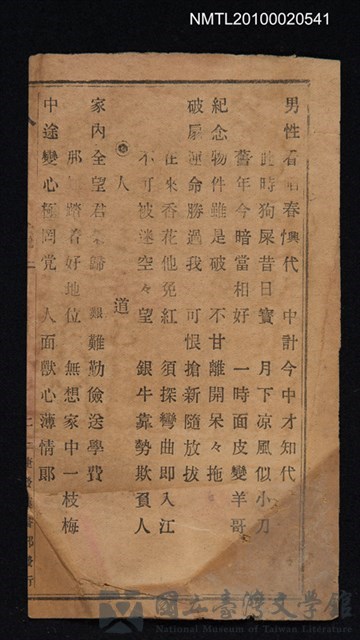 NMTL20100020541
男性看 春 代 中計今中才知代
此時狗屎昔日寶 月下凉風似小刀
舊年今暗當相好 一時面皮變羊哥
紀念物件雖是破 不甘離開呆々拖
破扇運命勝過我 可恨搶新隨放拔
在來香花他免紅 須探彎曲即入江
不可被迷空々望 銀牛靠勢欺負人
人道
家內全望君 歸 艱難勤儉送學費
那 踏着好地位 無想家中一枝梅
中途變心極罔党 人面獸心薄情郎
發行
國立臺灣文學館
National Museum of Taiwan Literature